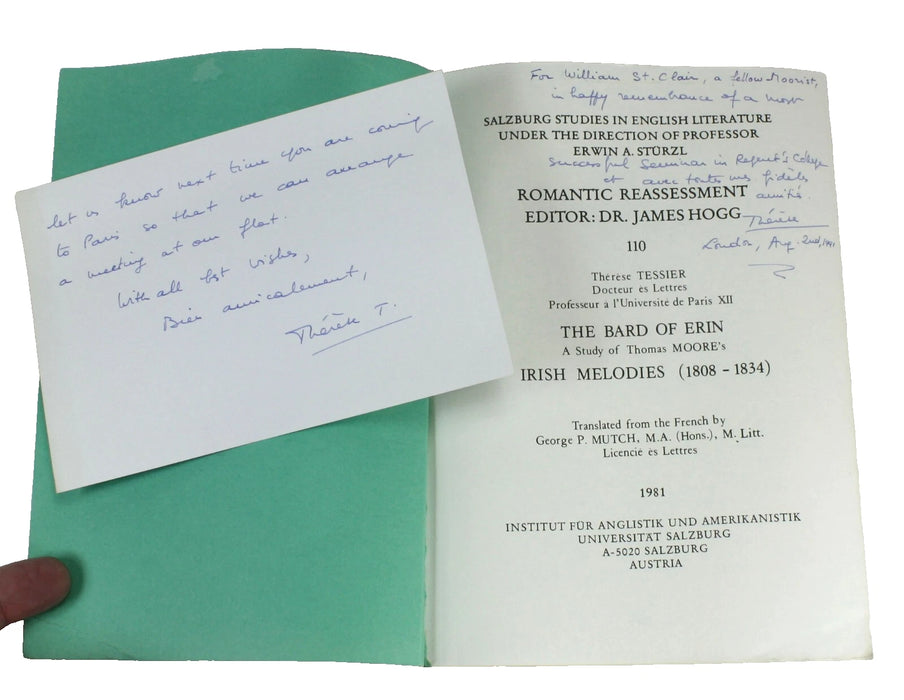 let us know next time you are coming
to Paris so that we can arrange
a meeting at our flat.
With all best wishes,
Bien amicalement,
Thérèse T.
For William St. Clair, a fellow-Moorist,
in happy remembrance of a most
SALZBURG STUDIES IN ENGLISH LITERATURE
UNDER THE DIRECTION OF PROFESSOR
ERWIN A. STÜRZL
successful Seminar in Regent's College
et avec toutes mes fidèles
ROMANTIC REASSESSMENT
amitiés.
EDITOR: DR. JAMES HOGG
Thérèse
110
London, Aug. 2nd,
Thérèse TESSIER
Docteur ès Lettres
Professeur à l'Université de Paris XII
THE BARD OF ERIN
A Study of Thomas MOORE's
IRISH MELODIES (1808 – 1834)
Translated from the French by
George P. MUTCH, M.A. (Hons.), M. Litt.
Licencié ès Lettres
1981
INSTITUT FÜR ANGLISTIK UND AMERIKANISTIK
UNIVERSITÄT SALZBURG
A-5020 SALZBURG
AUSTRIA